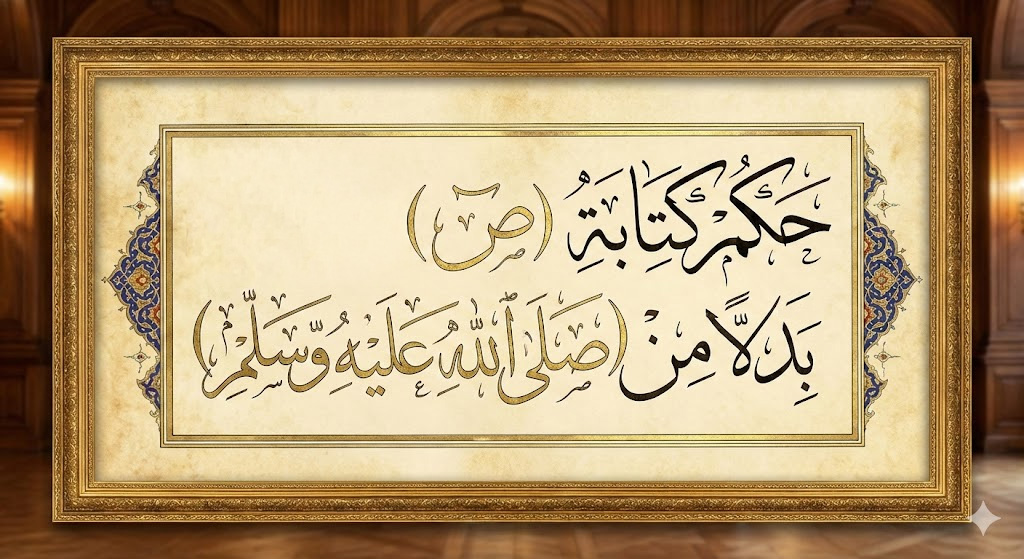 حَكْمُ كِتَابَةِ (صٓ)
بَدَلًا مِنْ (صَلَى ٱللهِ عَلَيْهِ وَسَلَّمْ)